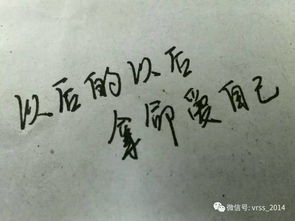 以后的以后
拿命爱自己
微信号: vrss_2014